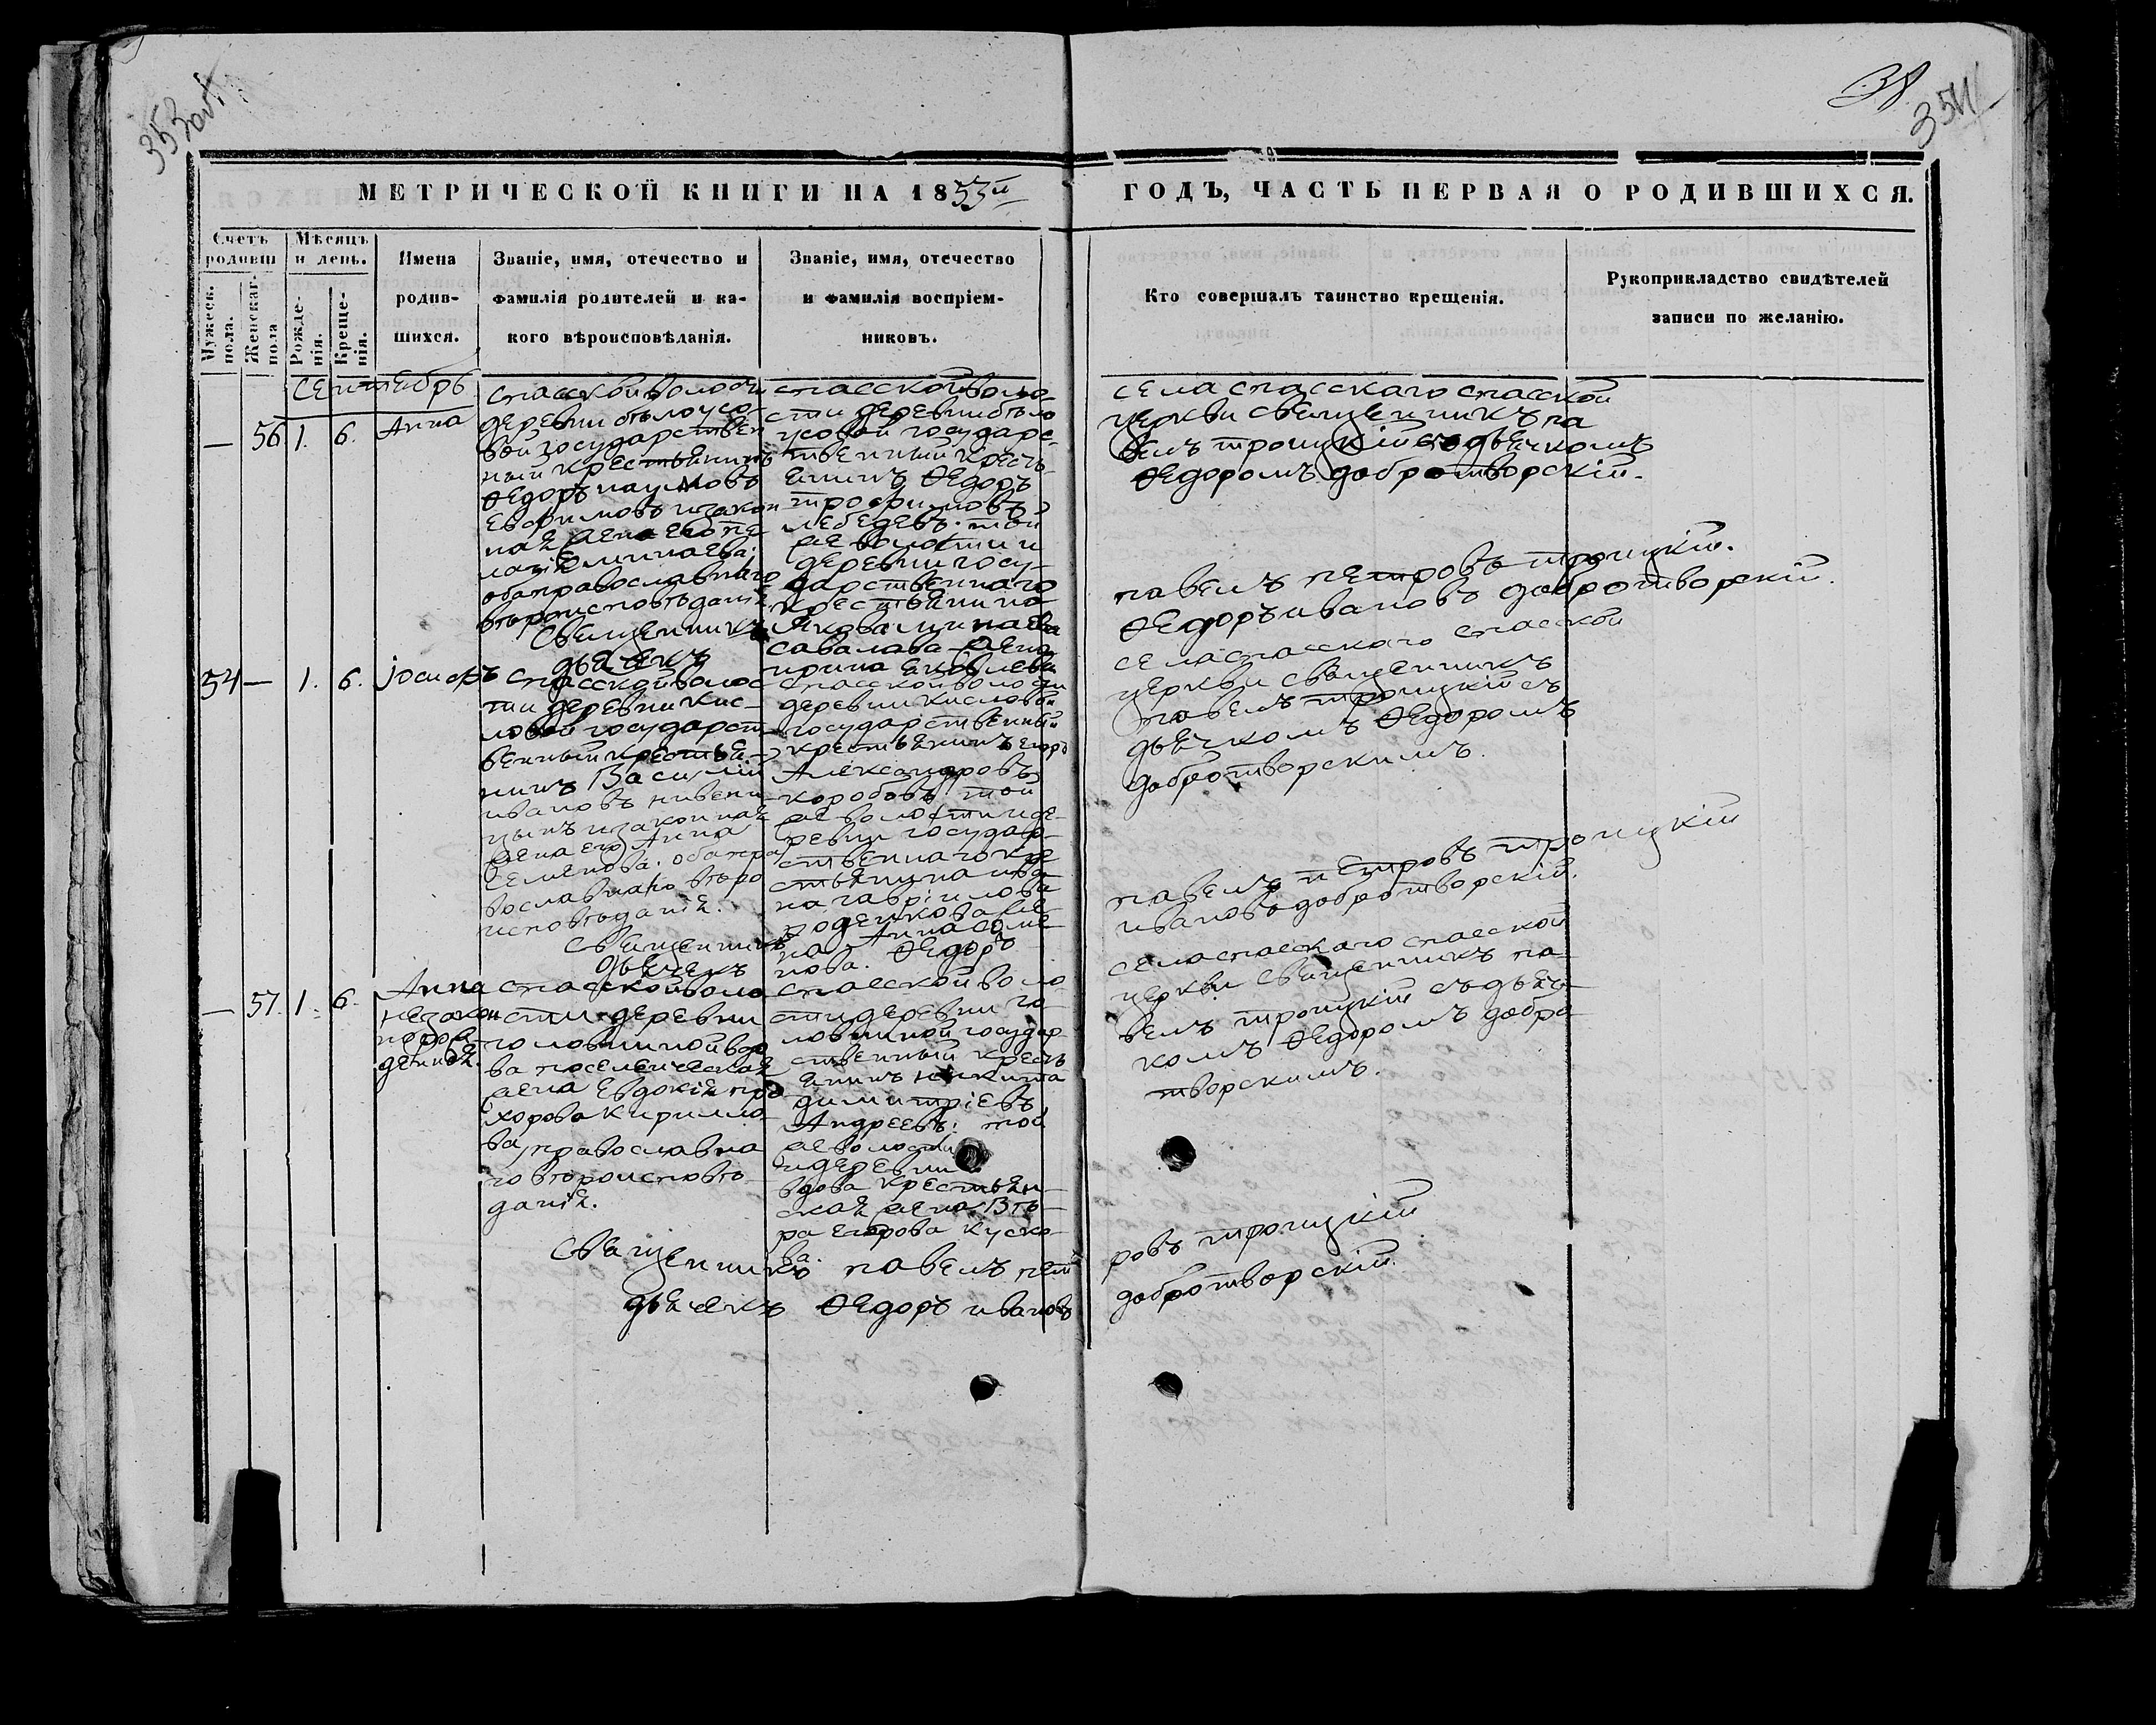 353 об
38
354
МЕТРИЧЕСКОЙ КНИГИ НА 1853й
ГОДЪ, ЧАСТЬ ПЕРВАЯ О РОДИВШИХСЯ.
Счетъ родивш
Мужеск. пола.
Женскаг. пола
Мѣсяцъ и день.
Рожденія.
Крещенія.
Имена
родив-
шихся.
Званіе, имя, отечество и
фамилія родителей и ка-
кого вѣроисповѣданія.
Званіе, имя, отечество
и фамилія воспріем-
никовъ.
Кто совершалъ таинство крещенія.
Рукоприкладство свидѣтелей
записи по желанію.
Сентебрь
— 56 1. 6. Анна
спасской волости
деревни бѣлоусо-
вой государствен
ный крестьянинъ
Ѳедоръ наумовъ
Евфимовъ изакон
ная жена его пе
лагія минаева.
оба православнаго
вѣроисповѣданія
спасской воло-
сти деревни бѣло
усовой государс-
твенный кресть
янинъ Ѳедоръ
трофимовъ
лебедевъ. той
же волости и
деревни госу-
дарственнаго
крестьянина
Якова минаева
савалава жена
ирина яковлева
села спасскаго спасской
церкви священникъ па
велъ троицкій съ дьячкомъ
Ѳедоромъ добротворскій.
Священникъ павелъ петровъ троицкій.
дьячекъ Ѳедоръ ивановъ добротворскій.
54 — 1. 6. іосифъ
спасской волос
ти деревни кис-
ловой государст
венный крестья-
нинъ Василій
ивановъ
цынъ изаконная
жена его Анна
семенова. оба пра
вославнаго вѣро
исповѣданія.
спасской волости
деревни кисловой
государственный
крестьянинъ егоръ
Александровъ
коробовъ той
же волости иде-
ревни государ-
ственнаго кре
стьянина ива
на гавріилова
роденкова же
на Анна семе
нова.
села спасскаго спасской
церкви священникъ
павелъ троицкій съ
дьячкомъ Ѳедоромъ
добротворскимъ.
Священникъ павелъ петровъ троицкій
дьячекъ Ѳедоръ ивановъ добротворскій.
— 57. 1. 6. Анна
незакон
норож
денная.
спасской воло
сти деревни
головиной вдо
ва поселенческая
жена Евдокія про
хорова кирилло
ва, православна
го вѣроисповѣ
данія.
спасской воло
сти деревни го
ловиной государ-
ственный кресть
янинъ никита
димитріевъ
Андреевъ. той
же волости
идеревни
вдова крестьян-
ская жена Вѣ-
ра егорова куско-
ва.
села спасскаго спасской
церкви священникъ па-
велъ троицкій съ дьяч-
комъ Ѳедоромъ добро
творскимъ.
Священникъ павелъ петровъ троицкій
дьячекъ Ѳедоръ ивановъ добротворскій.